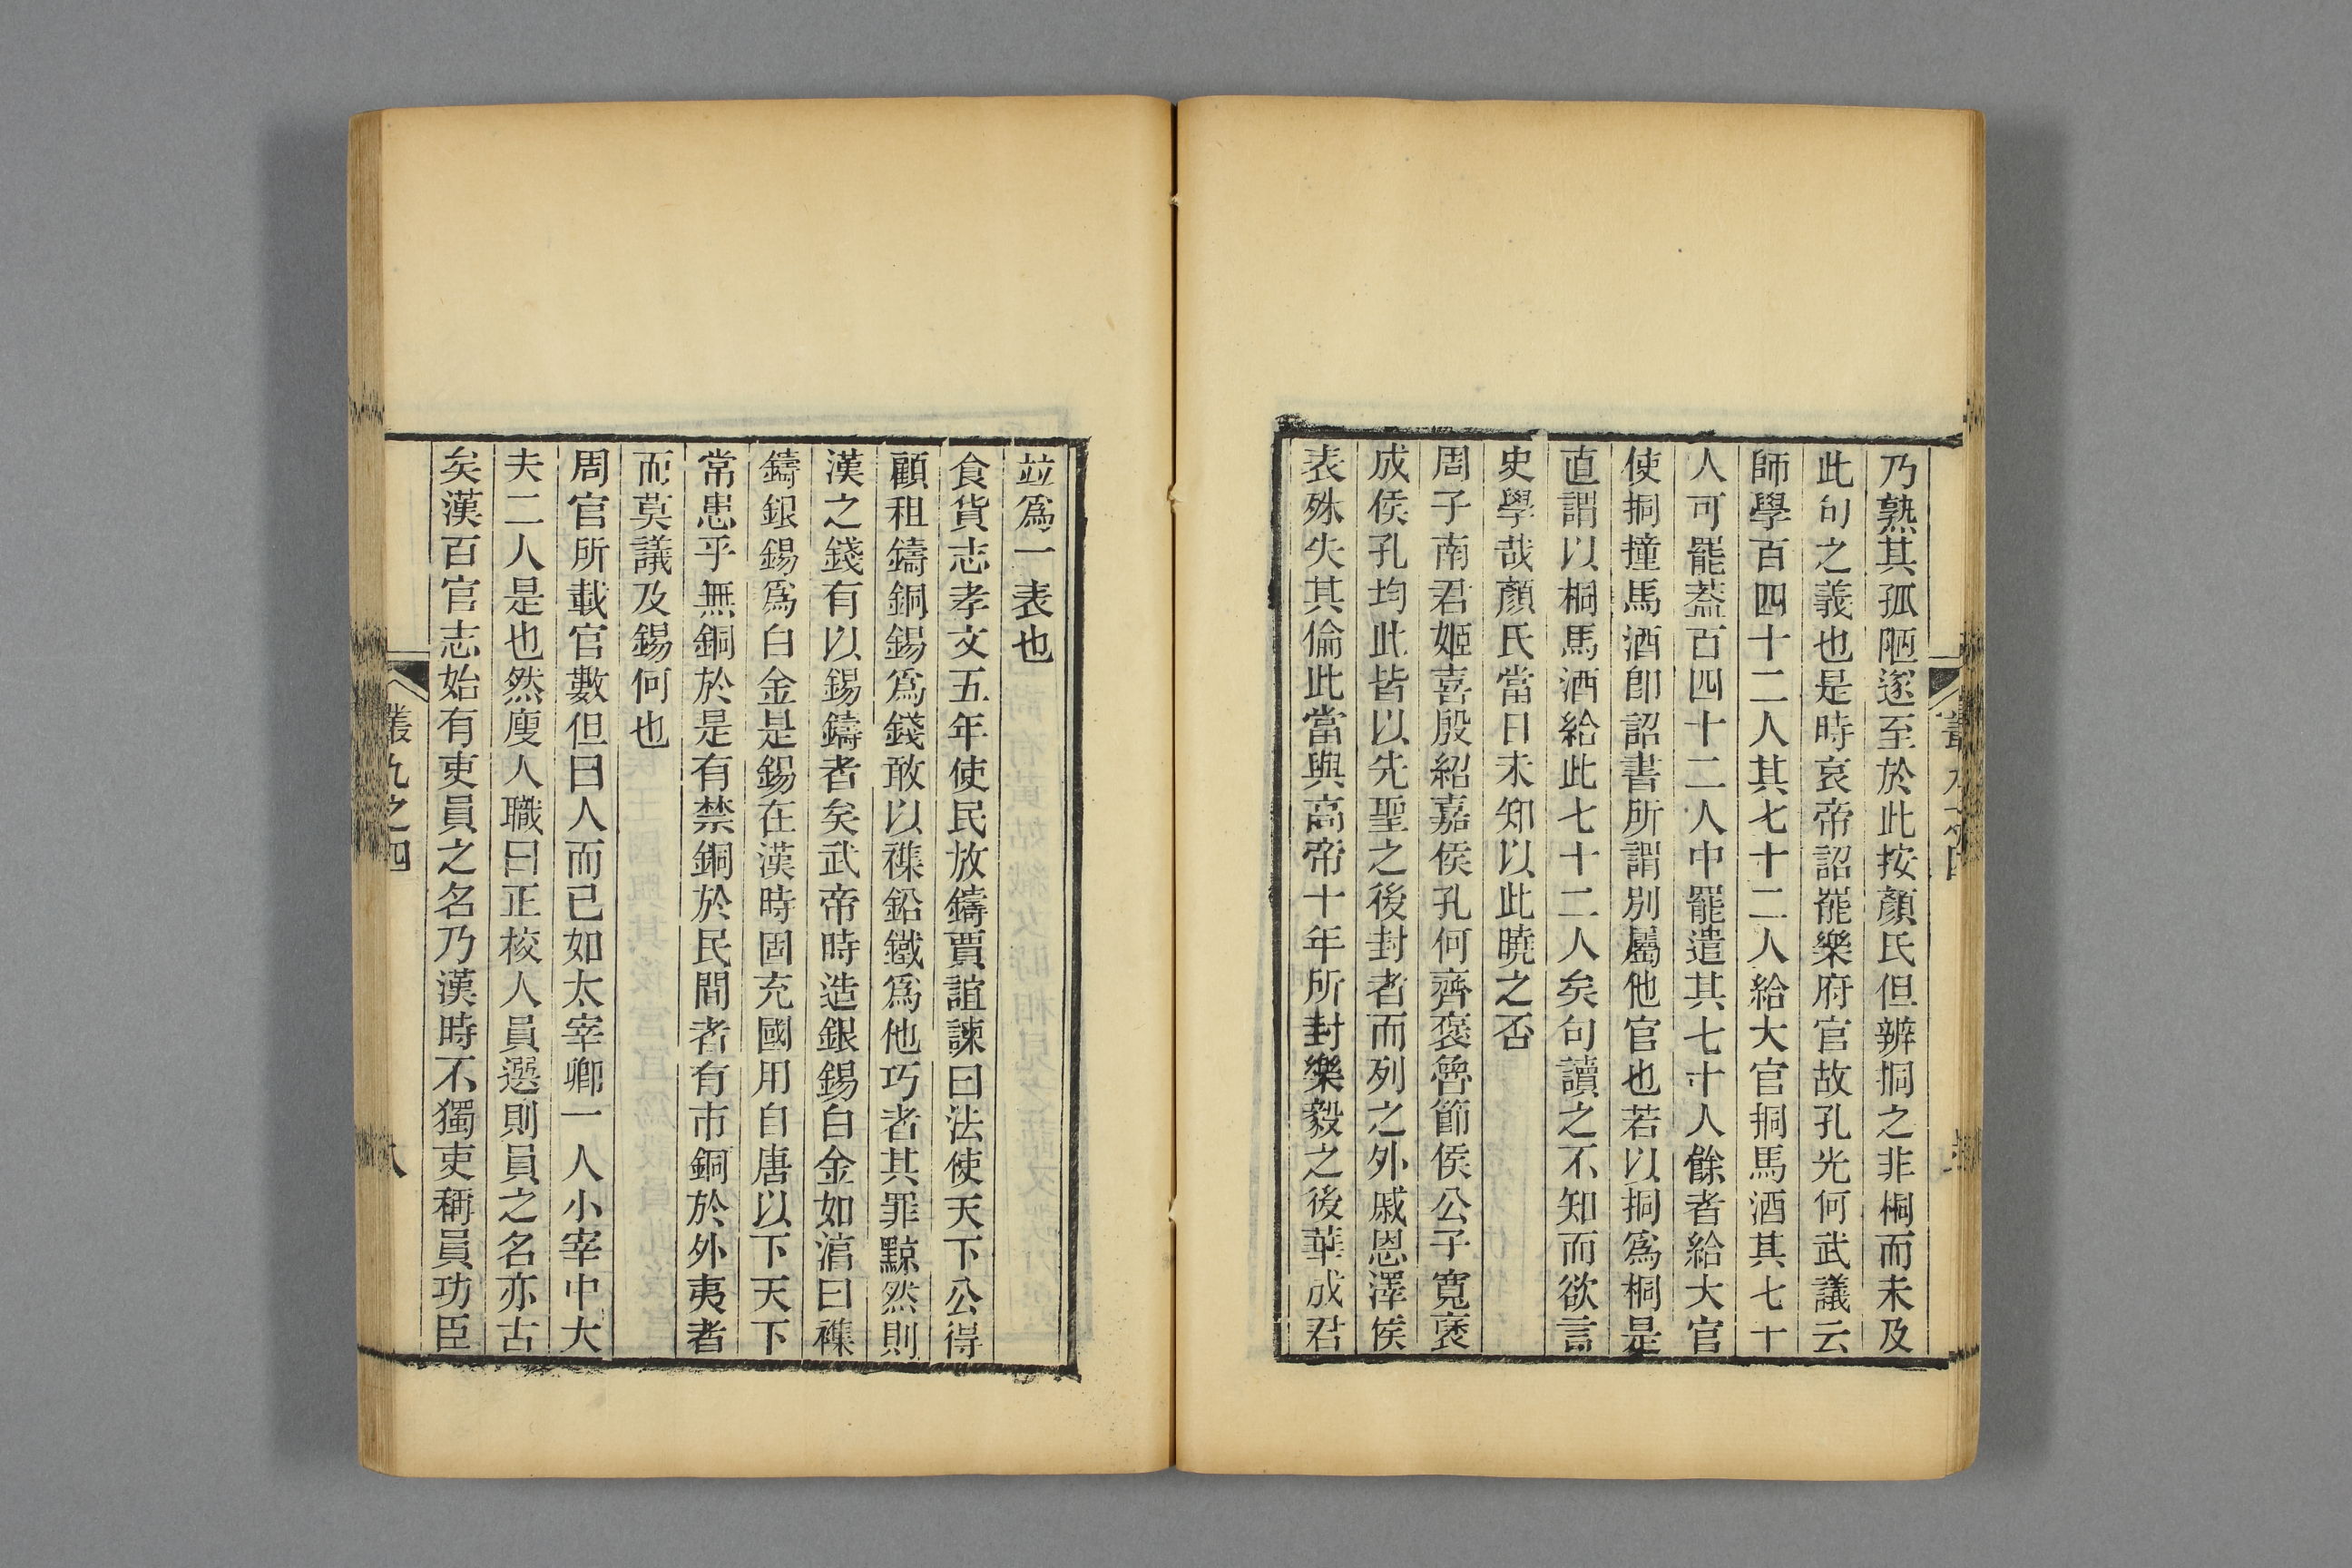 乃熟其孤陋遂至於此按顏氏但辨挏之非桐而未及
此句之義也是時哀帝詔罷樂府官故孔光何武議云
師學百四十二人其七十二人給大官挏馬酒其七十
人可罷葢百四十二人中罷遣其七十人餘者給大官
使挏撞馬酒卽詔書所謂別屬他官也若以挏爲桐是
直謂以桐馬酒給此七十二人矣句讀之不知而欲言
史學哉顏氏當日未知以此曉之否
周子南君姬喜殷紹嘉侯孔何齊褒魯節侯公子寬褒
成侯孔均此皆以先聖之後封者而列之外戚恩澤侯
表殊失其倫此當與高帝十年所封樂毅之後華成君
並爲一表也
食貨志孝文五年使民放鑄賈誼諫曰法使天下公得
顧租鑄銅錫爲錢敢以襍鉛鐵爲他巧者其罪黥然則
漢之錢有以錫鑄者矣武帝時造銀錫白金如湻曰襍
鑄銀錫爲白金是錫在漢時固充國用自唐以下天下
常患乎無銅於是有禁銅於民間者有市銅於外夷者
而莫議及錫何也
周官所載官數但曰人而已如太宰卿一人小宰中大
夫二人是也然廋人職曰正校人員選則員之名亦古
矣漢百官志始有吏員之名乃漢時不獨吏稱員功臣
叢九之四
八